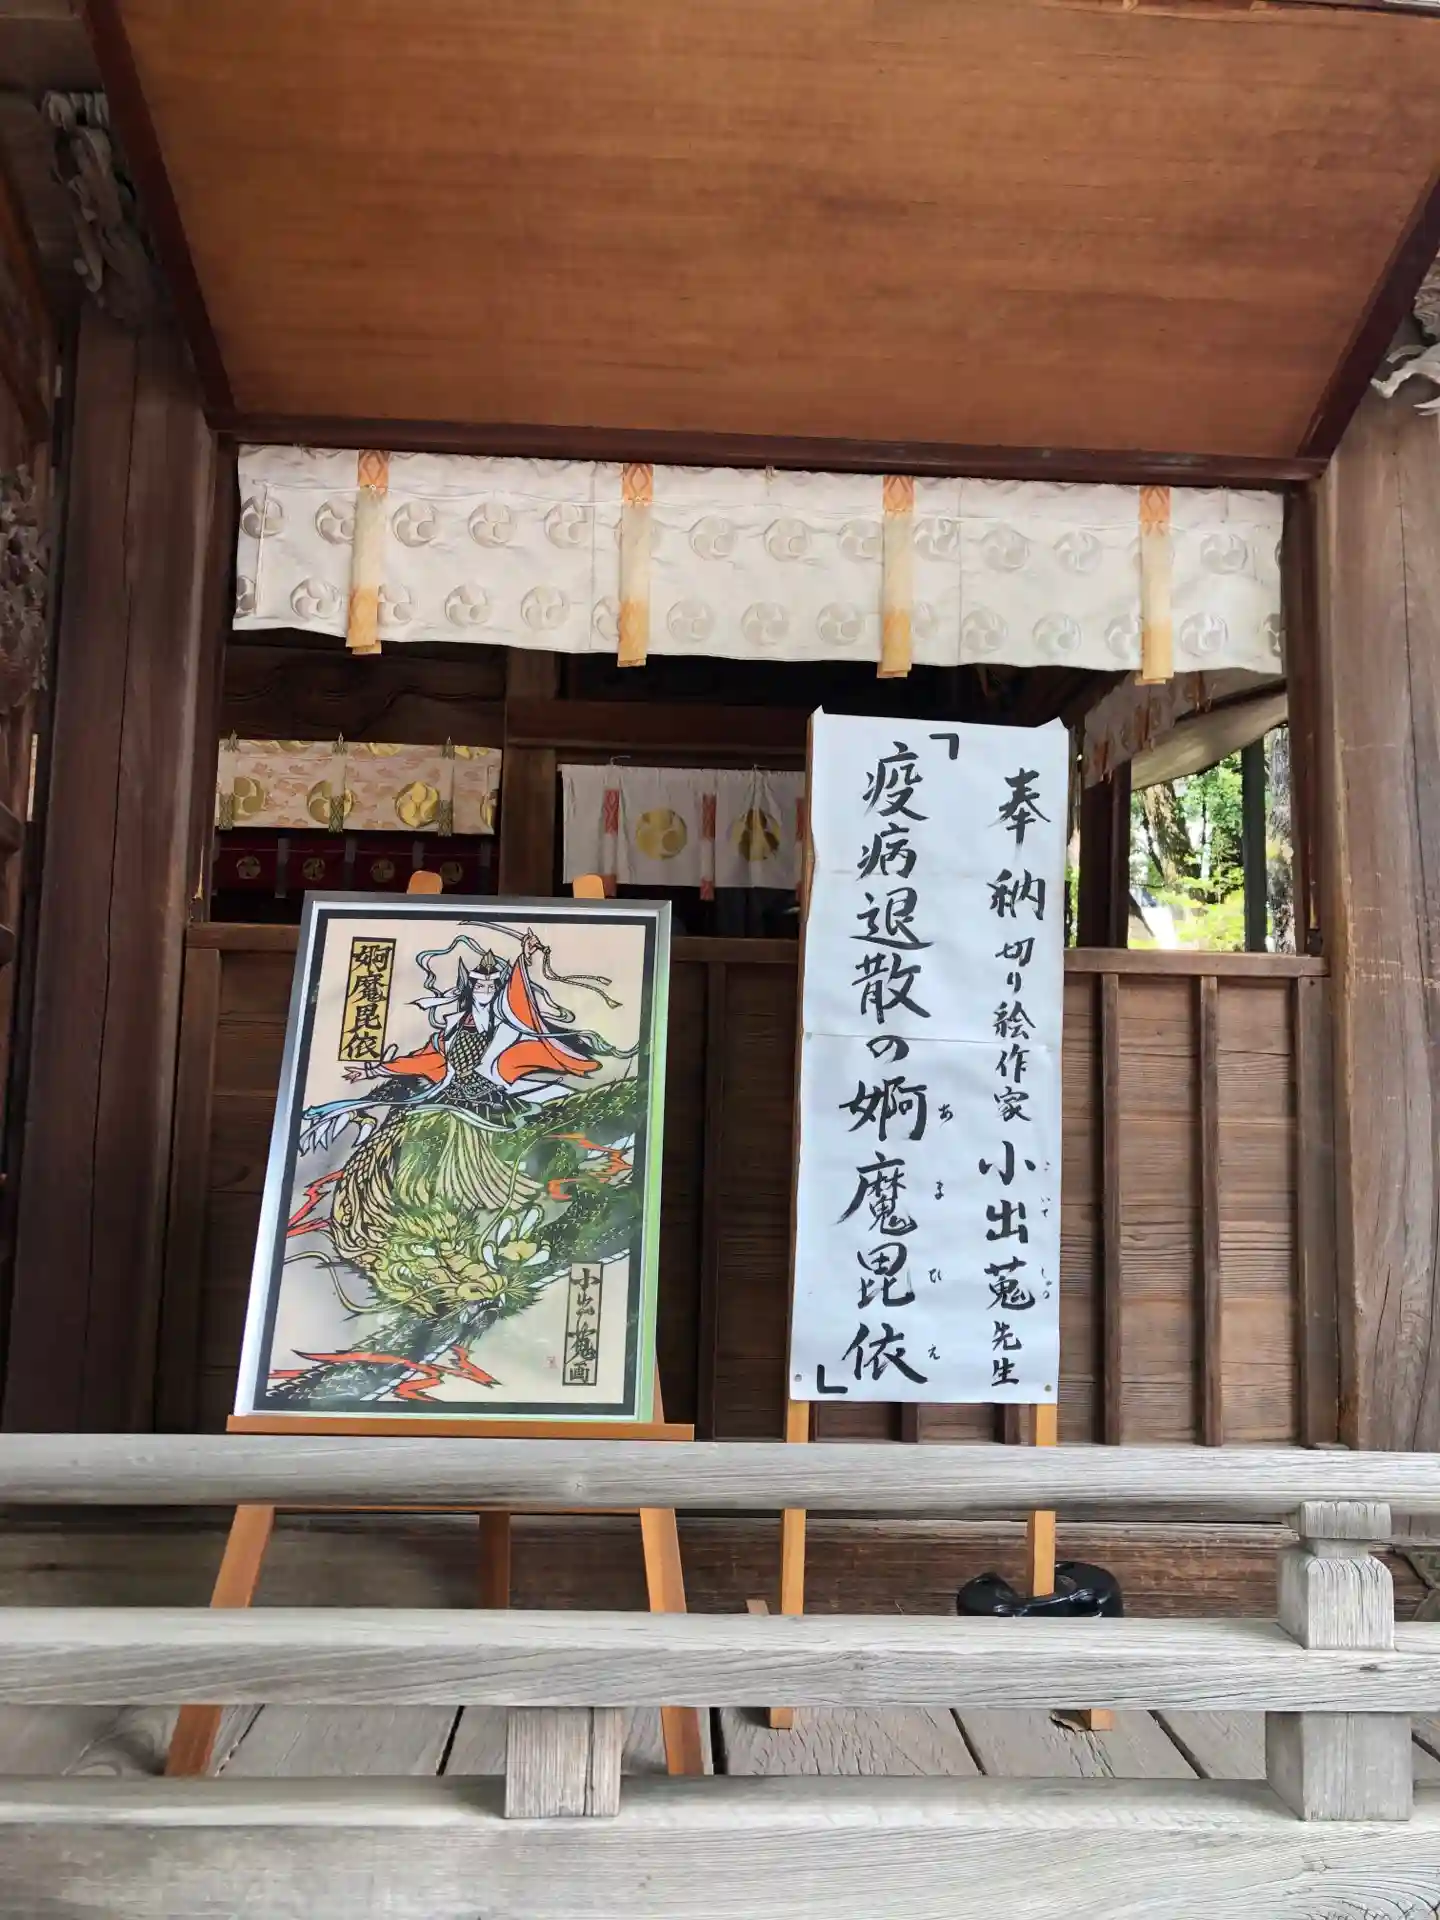 奉納 切り絵作家 小出蒐先生
こいで しゅう
「疫病退散の婀魔毘依」
あまびえ
婀魔毘依
小出蒐画